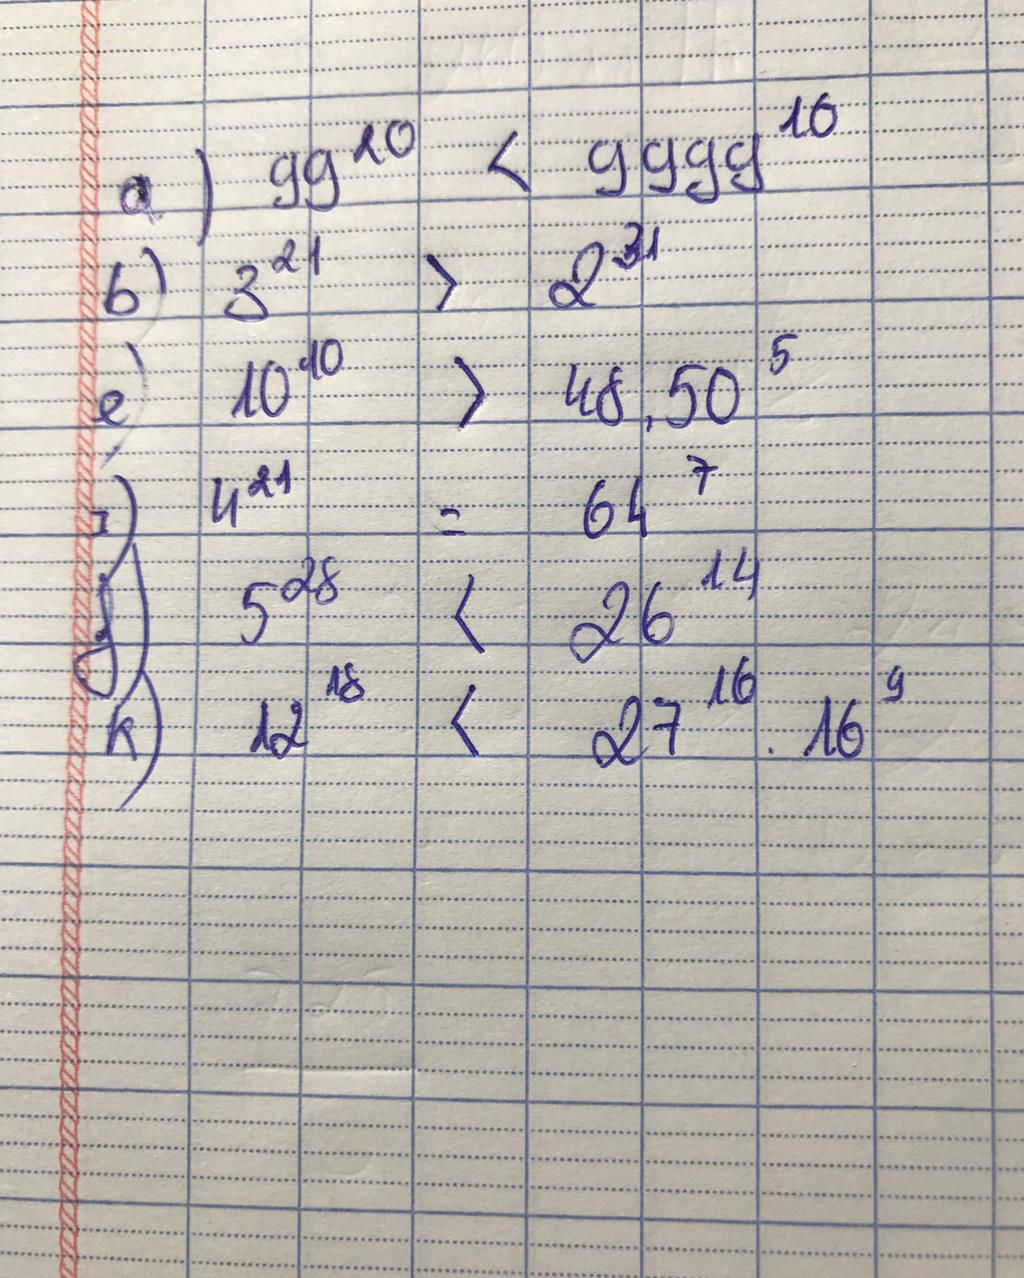 a) 99²⁰ < 9999¹⁰
b) 3²¹ > 2³¹
e) 10¹⁰ > 48.50⁵
I) 4²¹ = 64⁷
J) 5²⁸ < 26¹⁴
k) 12¹⁸ < 27¹⁶ . 16⁹